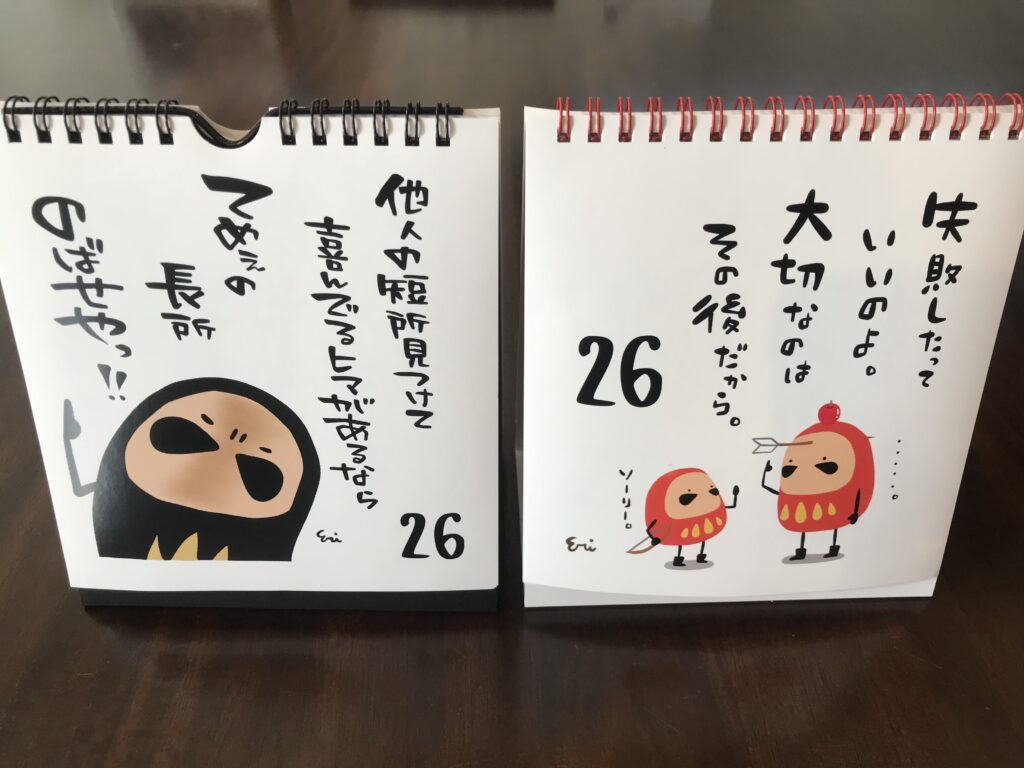 他人の短所見つけて
喜んでるヒマがあるなら
てめぇの
長所
のばせやっ!!
Eri
26
失敗したって
いいのよ。
大切なのは
その後だから。
26
‥‥‥。
ソーリー。
Eri